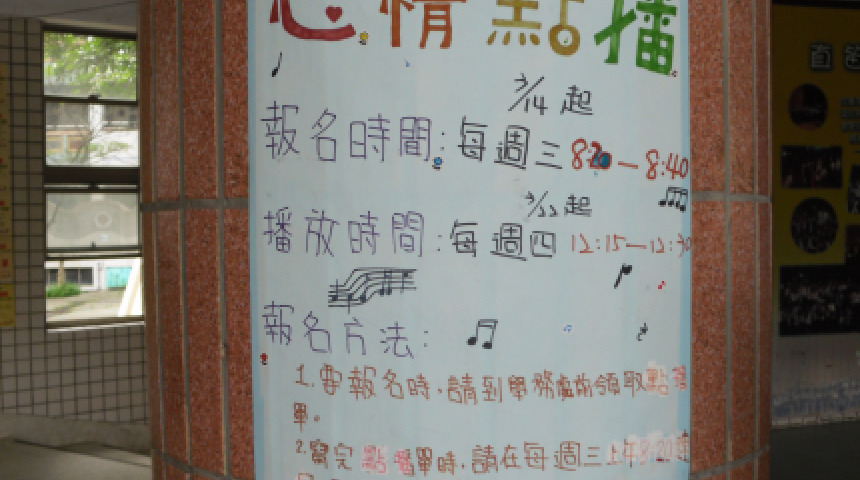 心情點播
3/14 起
報名時間:每週三 8:20—8:40
3/22 起
播放時間:每週四 12:15—12:30
報名方法:
1.要報名時,請到學務處前領取點播
單。
2.寫完點播單時,請在每週三上午8:20時
直